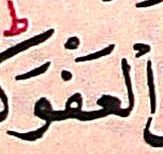 ط
اَلْعَفْوَ